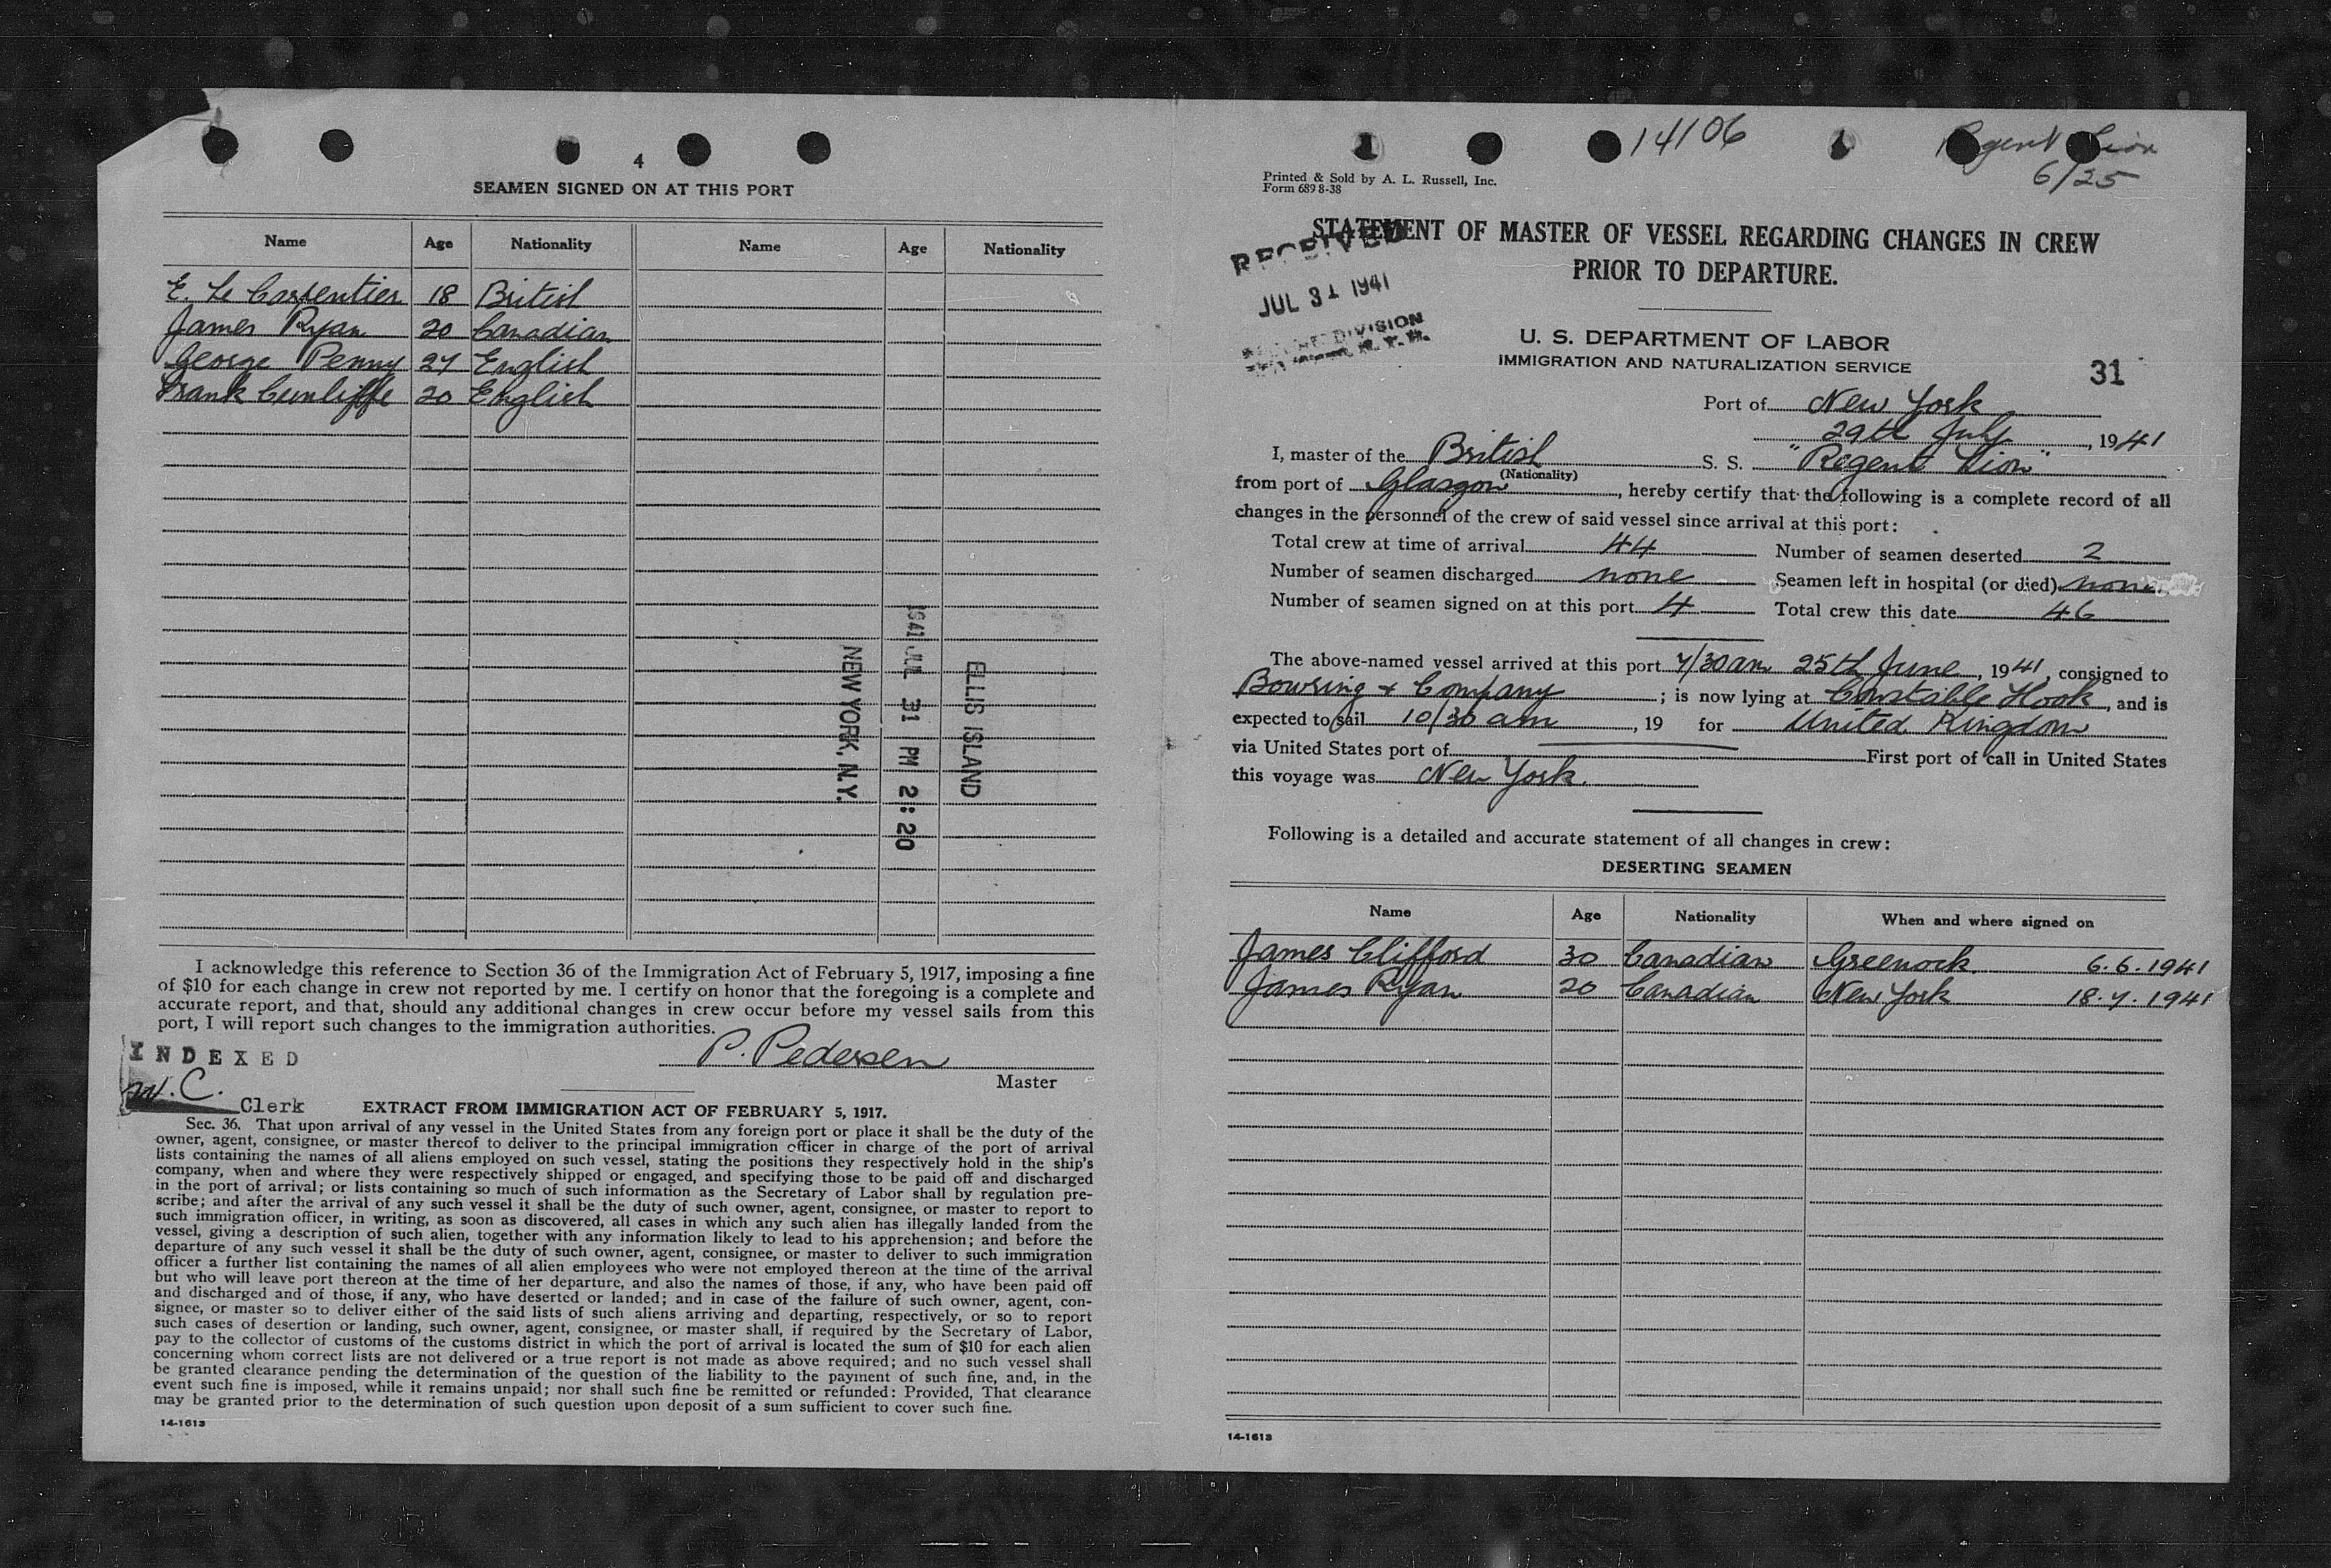 4
SEAMEN SIGNED ON AT THIS PORT
Name Age Nationality Name Age Nationality
E. Le Carpentier 18 British
James Ryan 20 Canadian
George Penny 27 English
Frank Cunliffe 20 English
ELLIS ISLAND
1941 JUL 31 PM 2:20
NEW YORK, N.Y.
I acknowledge this reference to Section 36 of the Immigration Act of February 5, 1917, imposing a fine
of $10 for each change in crew not reported by me. I certify on honor that the foregoing is a complete and
accurate report, and that, should any additional changes in crew occur before my vessel sails from this
port, I will report such changes to the immigration authorities.
P. Pedersen
Master
INDEXED
W.C. Clerk
EXTRACT FROM IMMIGRATION ACT OF FEBRUARY 5, 1917.
Sec. 36. That upon arrival of any vessel in the United States from any foreign port or place it shall be the duty of the
owner, agent, consignee, or master thereof to deliver to the principal immigration officer in charge of the port of arrival
lists containing the names of all aliens employed on such vessel, stating the positions they respectively hold in the ship's
company, when and where they were respectively shipped or engaged, and specifying those to be paid off and discharged
in the port of arrival; or lists containing so much of such information as the Secretary of Labor shall by regulation pre-
scribe; and after the arrival of any such vessel it shall be the duty of such owner, agent, consignee, or master to report to
such immigration officer, in writing, as soon as discovered, all cases in which any such alien has illegally landed from the
vessel, giving a description of such alien, together with any information likely to lead to his apprehension; and before the
departure of any such vessel it shall be the duty of such owner, agent, consignee, or master to deliver to such immigration
officer a further list containing the names of all alien employees who were not employed thereon at the time of the arrival
but who will leave port thereon at the time of her departure, and also the names of those, if any, who have been paid off
and discharged and of those, if any, who have deserted or landed; and in case of the failure of such owner, agent, con-
signee, or master so to deliver either of the said lists of such aliens arriving and departing, respectively, or so to report
such cases of desertion or landing, such owner, agent, consignee, or master shall, if required by the Secretary of Labor,
pay to the collector of customs of the customs district in which the port of arrival is located the sum of $10 for each alien
concerning whom correct lists are not delivered or a true report is not made as above required; and no such vessel shall
be granted clearance pending the determination of the question of the liability to the payment of such fine, and, in the
event such fine is imposed, while it remains unpaid; nor shall such fine be remitted or refunded: Provided, That clearance
may be granted prior to the determination of such question upon deposit of a sum sufficient to cover such fine.
14-1613
14106
Regent Lion
6/25
Printed & Sold by A. L. Russell, Inc.
Form 689 8-38
STATEMENT OF MASTER OF VESSEL REGARDING CHANGES IN CREW
PRIOR TO DEPARTURE.
RECEIVED
JUL 31 1941
DIVISION
U. S. DEPARTMENT OF LABOR
IMMIGRATION AND NATURALIZATION SERVICE
31
Port of New York
29th July, 1941
I, master of the British S. S. "Regent Lion"
(Nationality)
from port of Glasgow, hereby certify that the following is a complete record of all
changes in the personnel of the crew of said vessel since arrival at this port:
Total crew at time of arrival 44 Number of seamen deserted 2
Number of seamen discharged none Seamen left in hospital (or died) none
Number of seamen signed on at this port 4 Total crew this date 46
The above-named vessel arrived at this port 7/30 am 25th June, 1941, consigned to
Bowring & Company; is now lying at Constable Hook, and is
expected to sail 10/30 am, 19 for United Kingdom
via United States port of First port of call in United States
this voyage was New York.
Following is a detailed and accurate statement of all changes in crew:
DESERTING SEAMEN
Name Age Nationality When and where signed on
James Clifford 30 Canadian Greenock 6.6.1941
James Ryan 20 Canadian New York 18.7.1941
14-1613